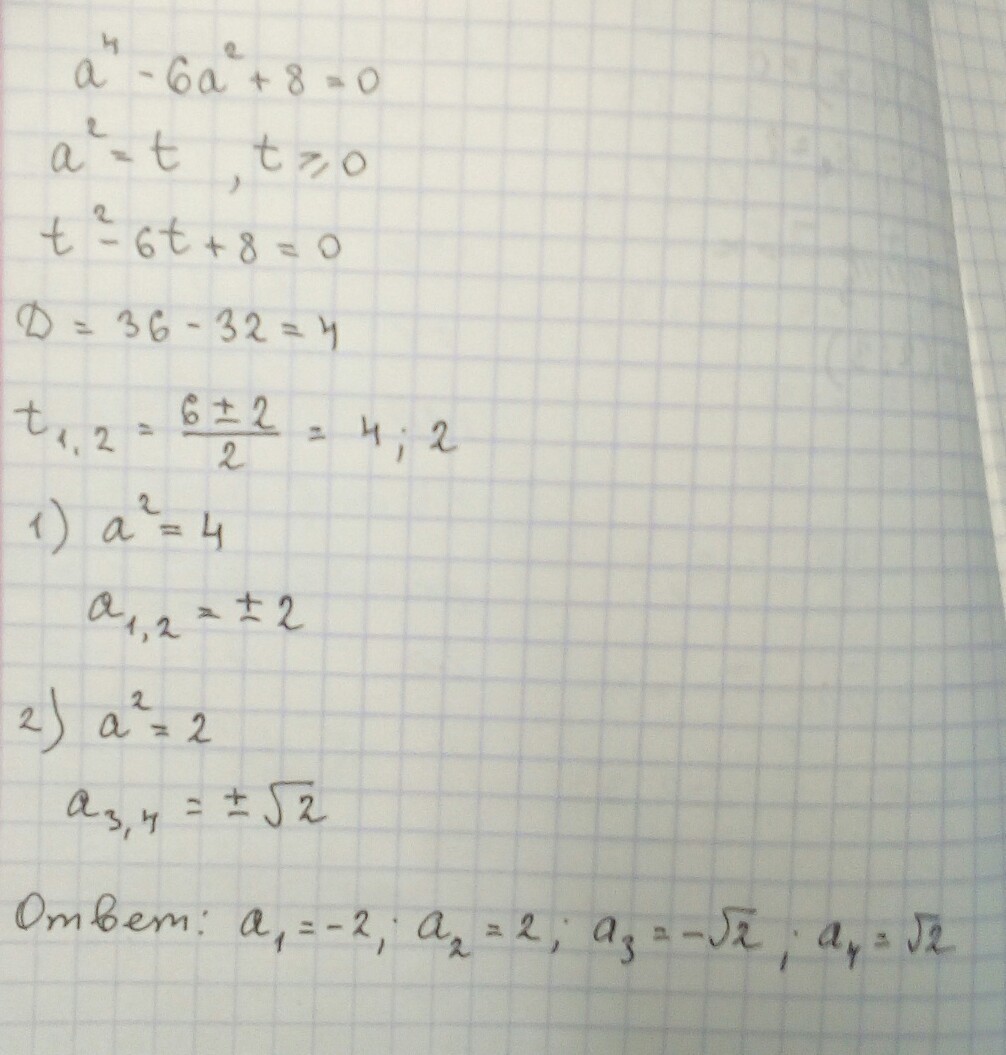 a⁴ - 6a² + 8 = 0
a² = t , t ⩾ 0
t² - 6t + 8 = 0
D = 36 - 32 = 4
t₁,₂ = (6 ± 2)/2 = 4 ; 2
1) a² = 4
a₁,₂ = ± 2
2) a² = 2
a₃,₄ = ± √2
Ответ: a₁ = -2; a₂ = 2; a₃ = -√2 ; a₄ = √2